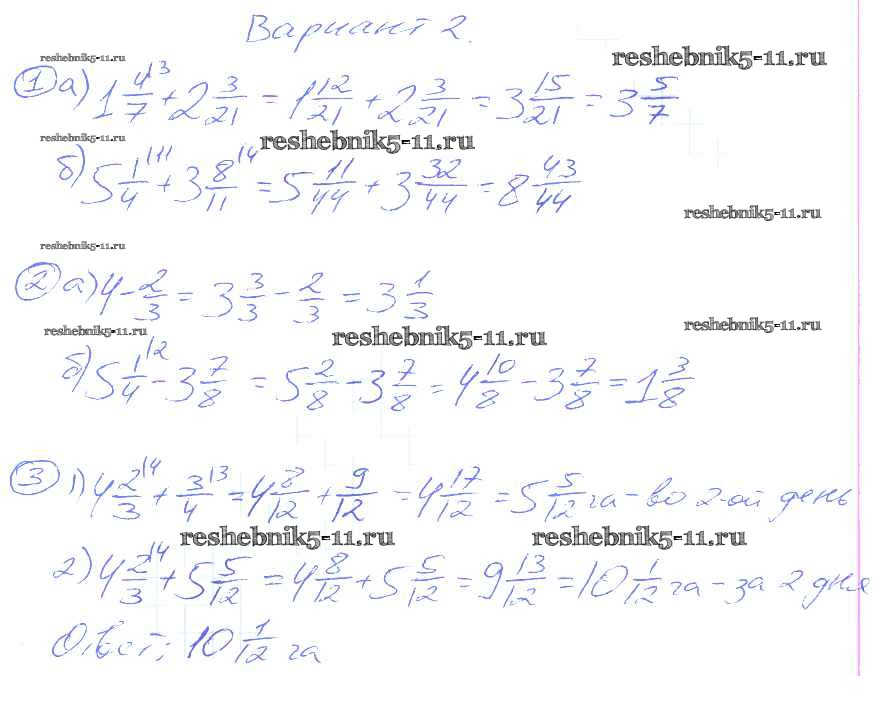 Вариант 2.
reshebnik5-11.ru
reshebnik5-11.ru
① а) 1 4/7 |3 + 2 3/21 = 1 12/21 + 2 3/21 = 3 15/21 = 3 5/7
reshebnik5-11.ru
reshebnik5-11.ru
б) 5 1/4 |11 + 3 8/11 |4 = 5 11/44 + 3 32/44 = 8 43/44
reshebnik5-11.ru
reshebnik5-11.ru
② а) 4 - 2/3 = 3 3/3 - 2/3 = 3 1/3
reshebnik5-11.ru
reshebnik5-11.ru
reshebnik5-11.ru
б) 5 1/4 |2 - 3 7/8 = 5 2/8 - 3 7/8 = 4 10/8 - 3 7/8 = 1 3/8
③ 1) 4 2/3 |4 + 3/4 |3 = 4 8/12 + 9/12 = 4 17/12 = 5 5/12 га - во 2-ой день
reshebnik5-11.ru
reshebnik5-11.ru
2) 4 2/3 |4 + 5 5/12 = 4 8/12 + 5 5/12 = 9 13/12 = 10 1/12 га - за 2 дня
Ответ: 10 1/12 га